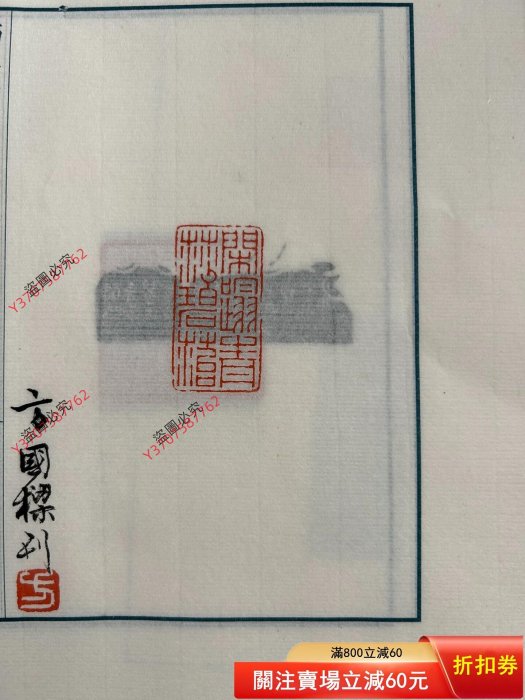 方國樑刊
方
盜圖必究
Y3707387762
盜圖必究
Y3707387762
盜圖必究
Y3707387762
滿800立減60
關注賣場立減60元
折扣券